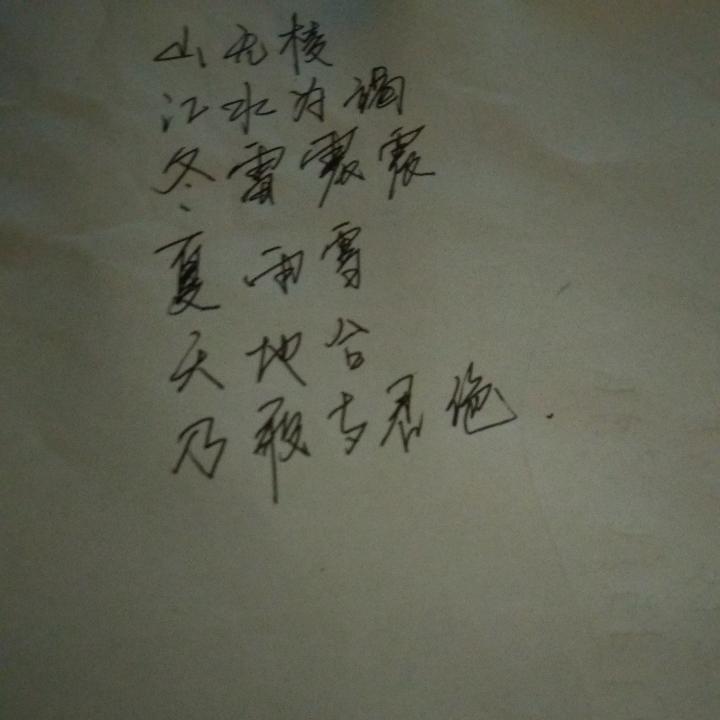 山无棱
江水为竭
冬雷震震
夏雨雪
天地合
乃敢与君绝.